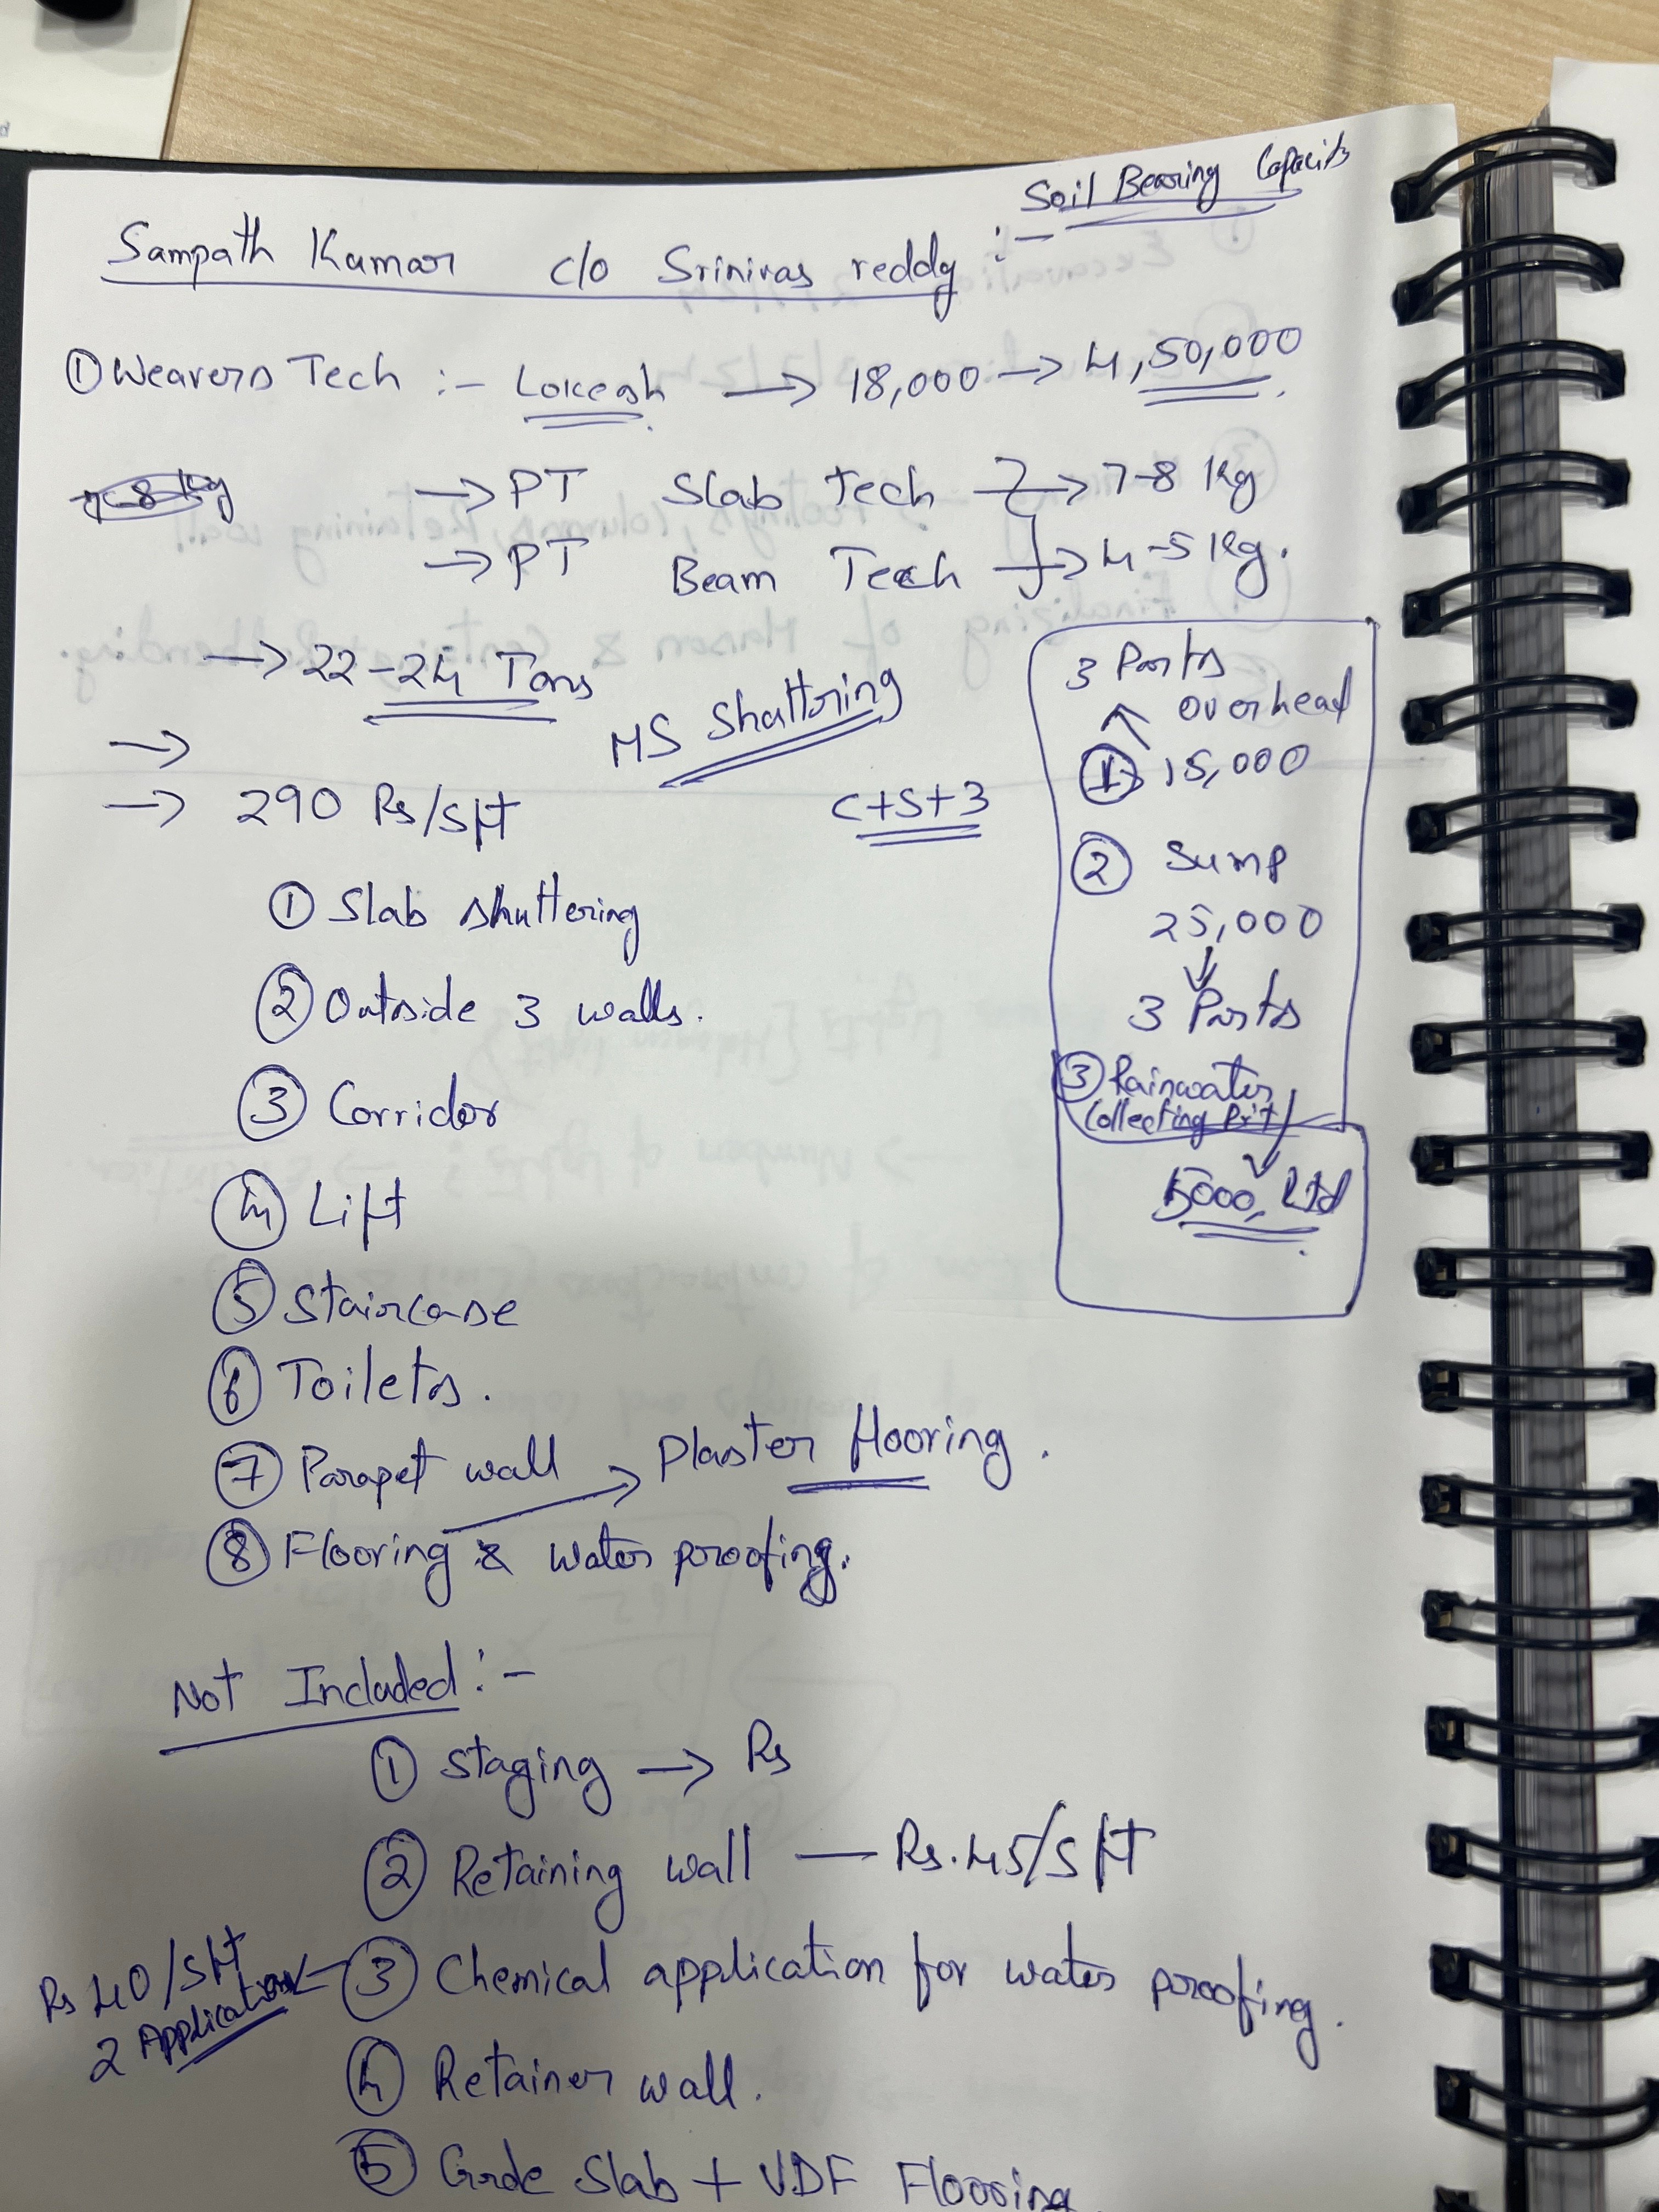 Soil Bearing Capacity
Sampath Kumar c/o Srinivas reddy :-
① Weavers Tech :- Lokesh → 18,000 → 4,50,000
7-8 Kg → PT Slab Tech → 7-8 Kg
→ PT Beam Tech → 4-5 Kg.
→ 22-24 Tons
MS Shuttring
→
→ 290 Rs/Sft
C+S+3
① Slab shuttering
② Outside 3 walls.
③ Corridor
④ Lift
⑤ Staircase
⑥ Toilets.
⑦ Parapet wall
→ Plaster flooring.
⑧ Flooring & water proofing.
3 Parts
overhead
① → 15,000
② Sump
25,000
↓
3 Parts
③ Rainwater
Collecting Pit
5000, Ltd
Not Included :-
① Staging → Rs
② Retaining wall — Rs.45/Sft
③ Chemical application for water proofing.
Rs 40/Sft
2 Application
④ Retainer wall.
⑤ Grde Slab + VDF Flooring